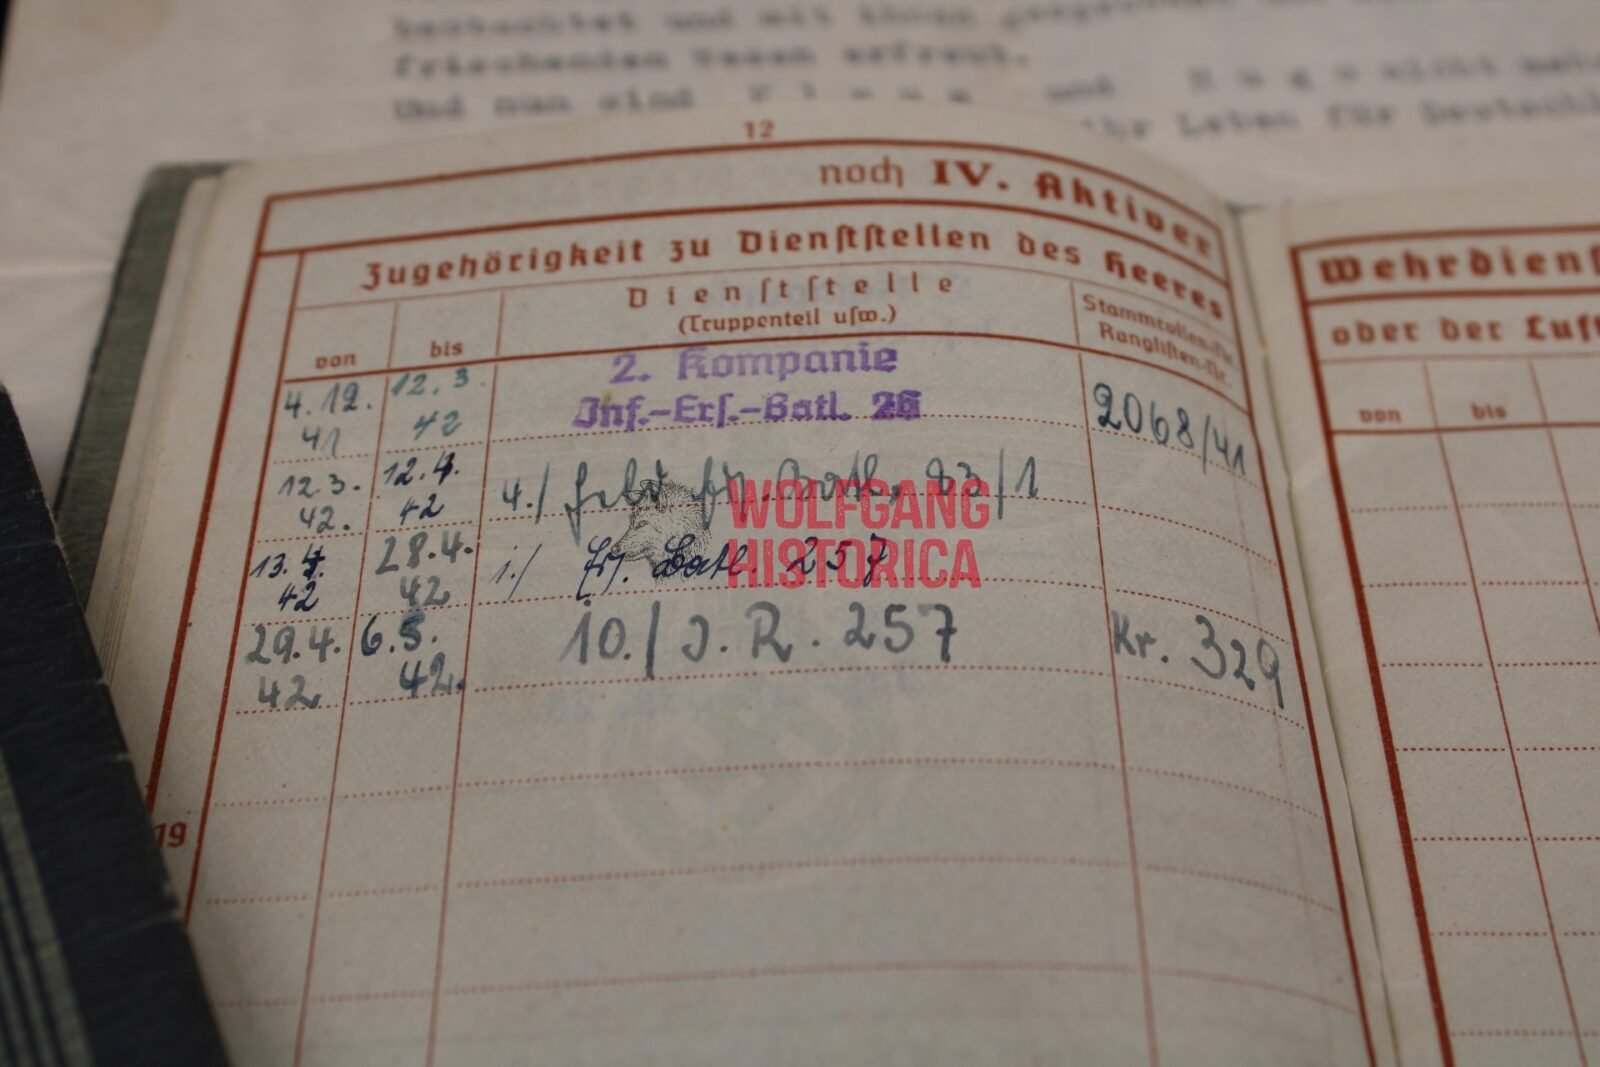 frischenden Wesen erfreut.
Und nun sind Klaus und Hugo nicht mehr
Ihr Leben für Deutschl
12
noch IV. Aktiver
Zugehörigkeit zu Dienststellen des Heeres
von
bis
Dienststelle
(Truppenteil usw.)
Stammrollen-Nr.
Ranglisten-Nr.
4.12.
41
12.3.
42
2. Kompanie
Inf.-Ers.-Batl. 26
2068/41
12.3.
42.
12.4.
42
4./ 83/1
13.4.
42
28.4.
42
1./ Ers. Batl. 257
29.4.
42
6.5.
42.
10./J.R. 257
Kr. 329
19
Wehrdiens
oder der Luft
von
bis
WOLFGANG
HISTORICA